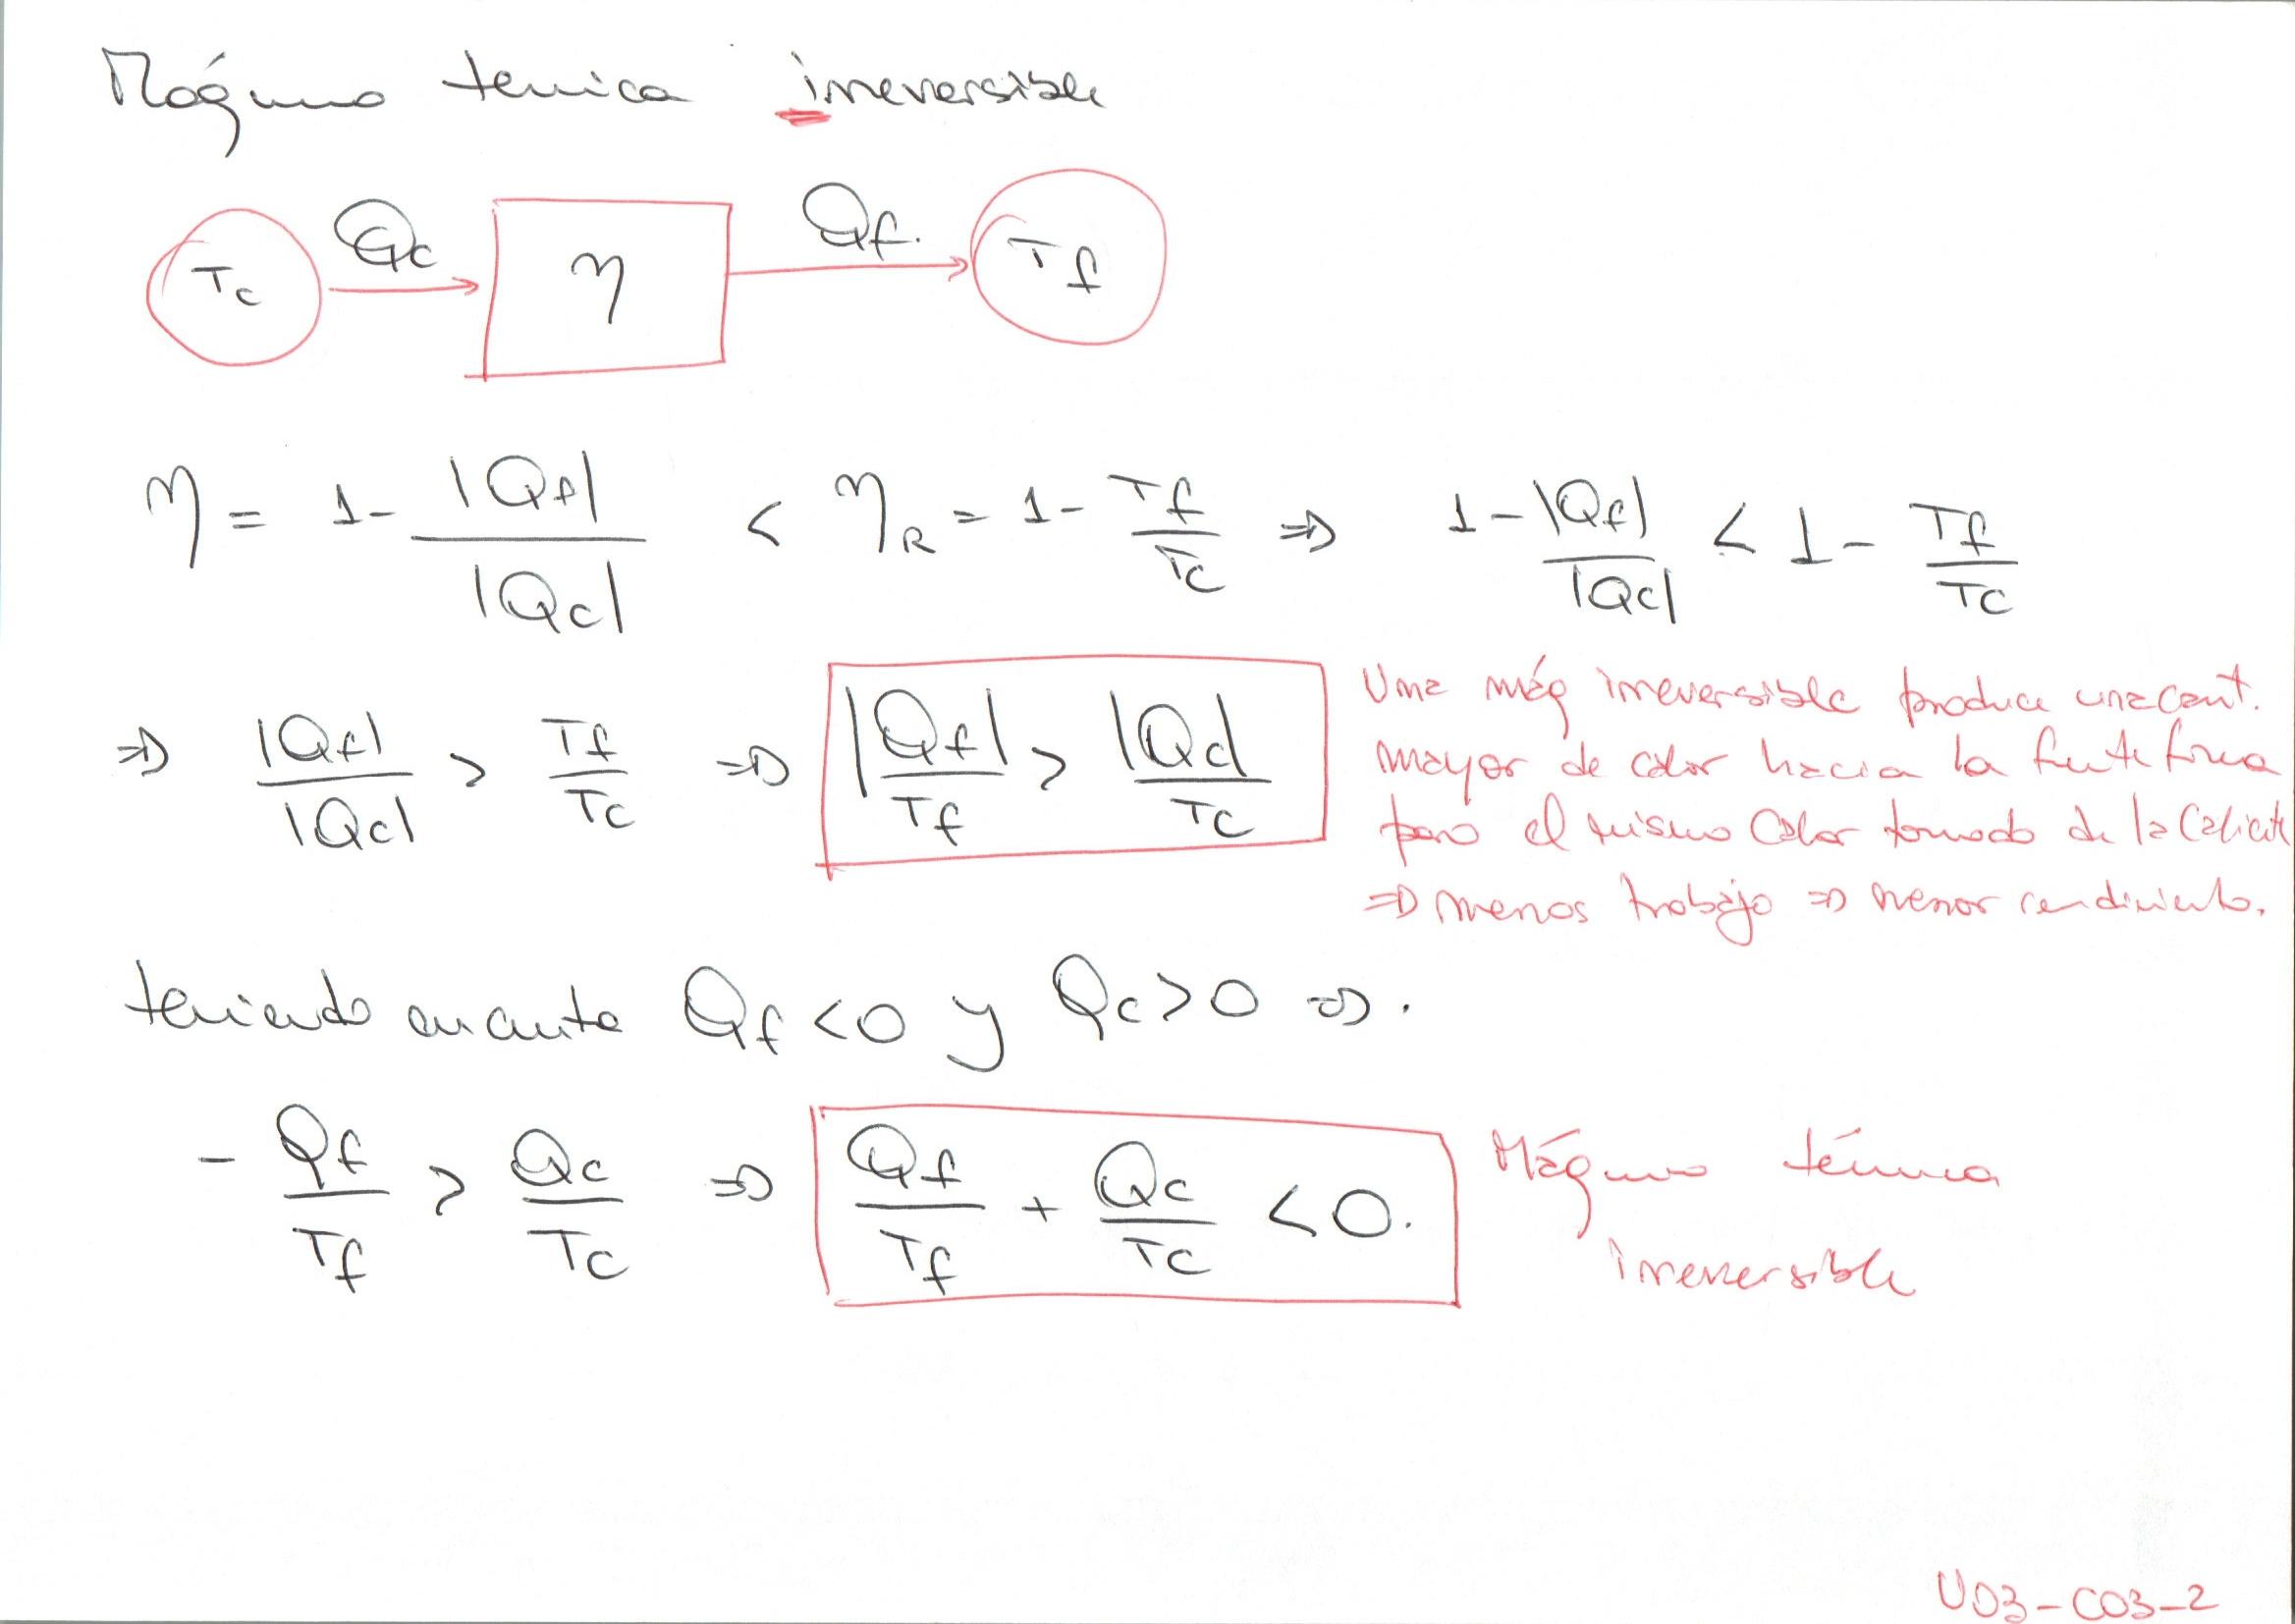 Máquina térmica irreversible
Tc Qc η Qf. Tf
η = 1 - |Qf| / |Qc| < ηR = 1 - Tf / Tc ⇒ 1 - |Qf| / |Qc| < 1 - Tf / Tc
⇒ |Qf| / |Qc| > Tf / Tc ⇒ |Qf| / Tf > |Qc| / Tc
Una máq irreversible produce una cant.
mayor de calor hacia la fuente fría
para el mismo calor tomado de la caliente
⇒ menos trabajo ⇒ menor rendimiento.
teniendo en cuenta Qf < 0 y Qc > 0 ⇒.
- Qf / Tf > Qc / Tc ⇒ Qf / Tf + Qc / Tc < 0.
Máquina térmica
irreversible
U03-C03-2